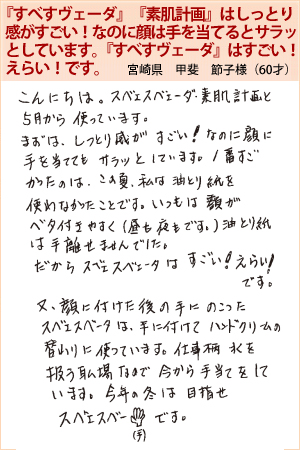 『すべすヴェーダ』『素肌計画』はしっとり
感がすごい！なのに顔は手を当てるとサラッ
としています。『すべすヴェーダ』はすごい！
えらい！です。
宮崎県　甲斐　節子様（60才）
こんにちは。スベスベヴェーダ・素肌計画と
5月から使っています。
まずは、しっとり感がすごい！なのに顔に
手を当てても サラッとしています。1番すご
かったのは、この夏、私は油とり紙を
使わなかったことです。いつもは顔が
ベタ付きやすく（昼も夜もです。）油とり紙
は手離せませんでした。
だから スベスベヴェータは すごい！えらい！
です。
又、顔に付けた後の手に のこった
スベスベベータは、手に付けて ハンドクリームの
替わりに使っています。仕事柄 水を
扱う職場なので 今から手当てをして
います。今年の冬は 目指せ
スベスベベー です。
（手）